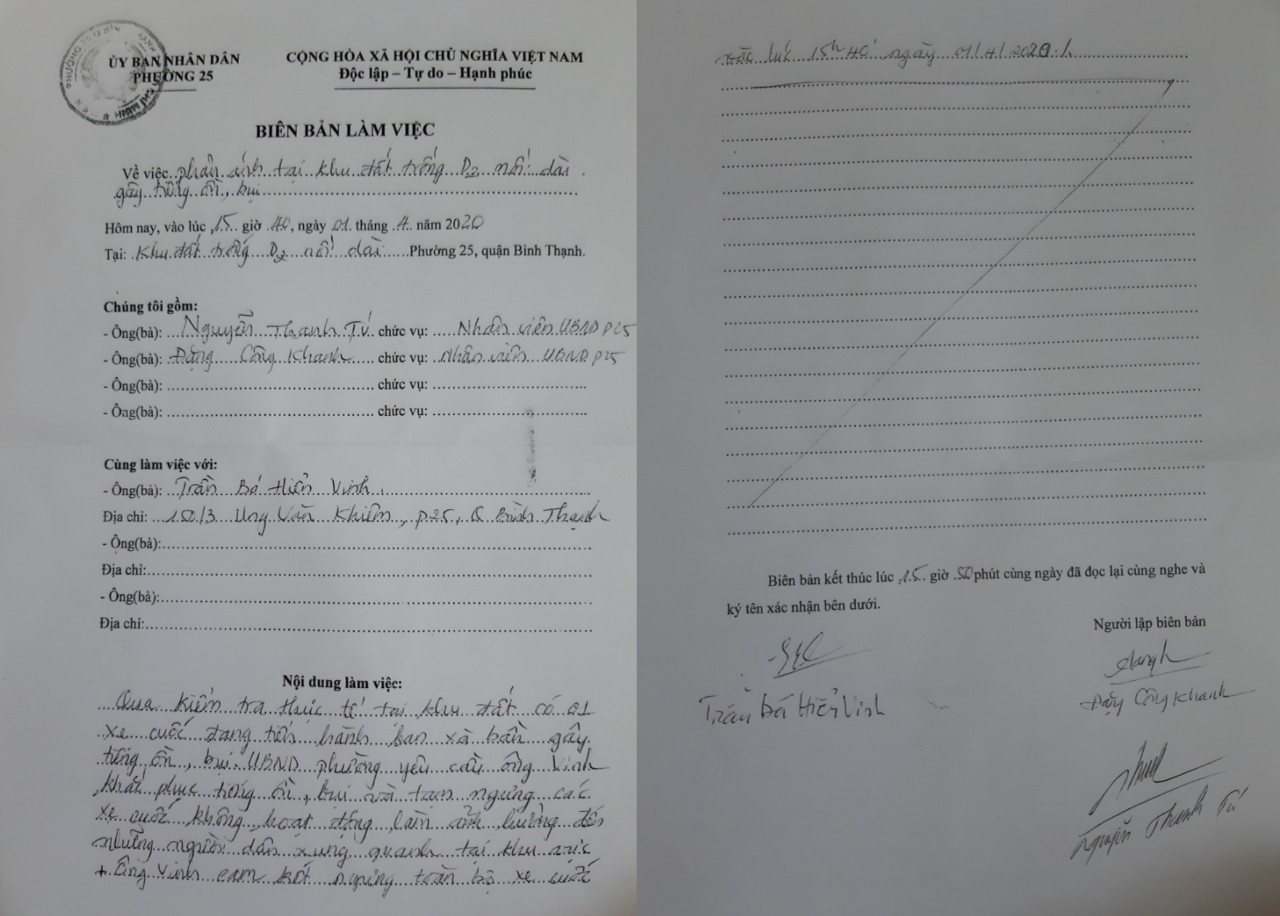 ỦY BAN NHÂN DÂN
PHƯỜNG 25
CỘNG HÒA XÃ HỘI CHỦ NGHĨA VIỆT NAM
Độc lập – Tự do – Hạnh phúc
BIÊN BẢN LÀM VIỆC
Về việc phản ánh tại khu đất trống D2 nối dài
gây tiếng ồn, bụi
Hôm nay, vào lúc 15 giờ 40, ngày 01 tháng 4 năm 2020
Tại: Khu đất trống D2 nối dài Phường 25, quận Bình Thạnh.
Chúng tôi gồm:
- Ông(bà): Nguyễn Thanh Tú chức vụ: Nhân viên UBND P25
- Ông(bà): Đặng Công Khanh chức vụ: Nhân viên UBND P25
- Ông(bà): chức vụ:
- Ông(bà): chức vụ:
Cùng làm việc với:
- Ông(bà): Trần Bá Hiển Vinh
Địa chỉ: 150/3 Ung Văn Khiêm, P25, Q Bình Thạnh
- Ông(bà):
Địa chỉ:
- Ông(bà):
Địa chỉ:
Nội dung làm việc:
Qua kiểm tra thực tế tại khu đất có 01
xe cuốc đang tiến hành ban xà bần gây
tiếng ồn, bụi. UBND phường yêu cầu ông Vinh
khắc phục tiếng ồn, bụi và tạm ngưng các
xe cuốc không hoạt động làm ảnh hưởng đến
những người dân xung quanh tại khu vực
+ Ông Vinh cam kết ngưng toàn bộ xe cuốc
lúc 15h40' ngày 01/4/2020./.
Biên bản kết thúc lúc 15 giờ 50 phút cùng ngày đã đọc lại cùng nghe và
ký tên xác nhận bên dưới.
Người lập biên bản
Trần Bá Hiển Vinh
Đặng Công Khanh
Nguyễn Thanh Tú